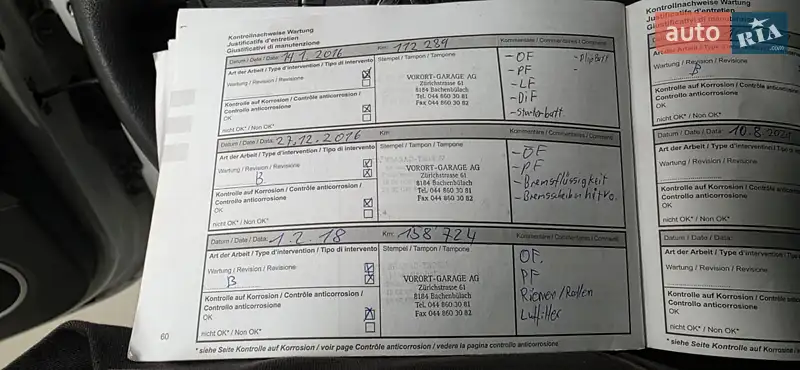 Kontrollnachweise Wartung
Justificatifs d'entretien
Giustificativi di manutenzione
Datum / Date / Data: 14.1.2016 Km: 112 289 Kommentare / Commentaires / Commenti
Art der Arbeit / Type d'intervention / Tipo di intervento Stempel / Tampon / Tampone
Wartung / Revision / Revisione
- ÖF
- PF
- LF
- DiF
- Starterbatt.
Kontrolle auf Korrosion / Contrôle anticorrosion /
Controllo anticorrosione
OK
nicht OK* / Non OK*
VORORT-GARAGE AG
Zürichstrasse 61
8184 Bachenbülach
Tel. 044 860 30 81
Fax 044 860 30 82
Datum / Date / Data: 27.12.2016 Km: Kommentare / Commentaires / Commenti
Art der Arbeit / Type d'intervention / Tipo di intervento Stempel / Tampon / Tampone
Wartung / Revision / Revisione
B
- ÖF
- PF
- Bremsflüssigkeit
- Bremsscheiben
Kontrolle auf Korrosion / Contrôle anticorrosion /
Controllo anticorrosione
OK
nicht OK* / Non OK*
VORORT-GARAGE AG
Zürichstrasse 61
8184 Bachenbülach
Tel. 044 860 30 81
Fax 044 860 30 82
Datum / Date / Data: 1.2.18 Km: 158 724 Kommentare / Commentaires / Commenti
Art der Arbeit / Type d'intervention / Tipo di intervento Stempel / Tampon / Tampone
Wartung / Revision / Revisione
B
ÖF.
PF
Riemen/Rollen
Luftfilter
Kontrolle auf Korrosion / Contrôle anticorrosion /
Controllo anticorrosione
OK
nicht OK* / Non OK*
VORORT-GARAGE AG
Zürichstrasse 61
8184 Bachenbülach
Tel. 044 860 30 81
Fax 044 860 30 82
60
* siehe Seite Kontrolle auf Korrosion / voir page Contrôle anticorrosion / vedere la pagina controllo anticorrosione
Kontrollnachweise Wartung
Wartung / Revision / Revisione
B
Kontrolle auf Korrosion /
Controllo anticorrosione
OK
nicht OK* / Non OK*
Datum / Date / Data: 10.8.2021
Art der Arbeit / Type d'intervention
Wartung / Revision / Revisione
Kontrolle auf Korrosion /
Controllo anticorrosione
OK
nicht OK* / Non OK*
Datum / Date / Data:
Art der Arbeit / Type d'intervention
Wartung / Revision / Revisione
Kontrolle auf Korrosion / C
Controllo anticorrosione
OK
nicht OK* / Non OK*
* siehe Seite Kontrolle
auto RIA.com